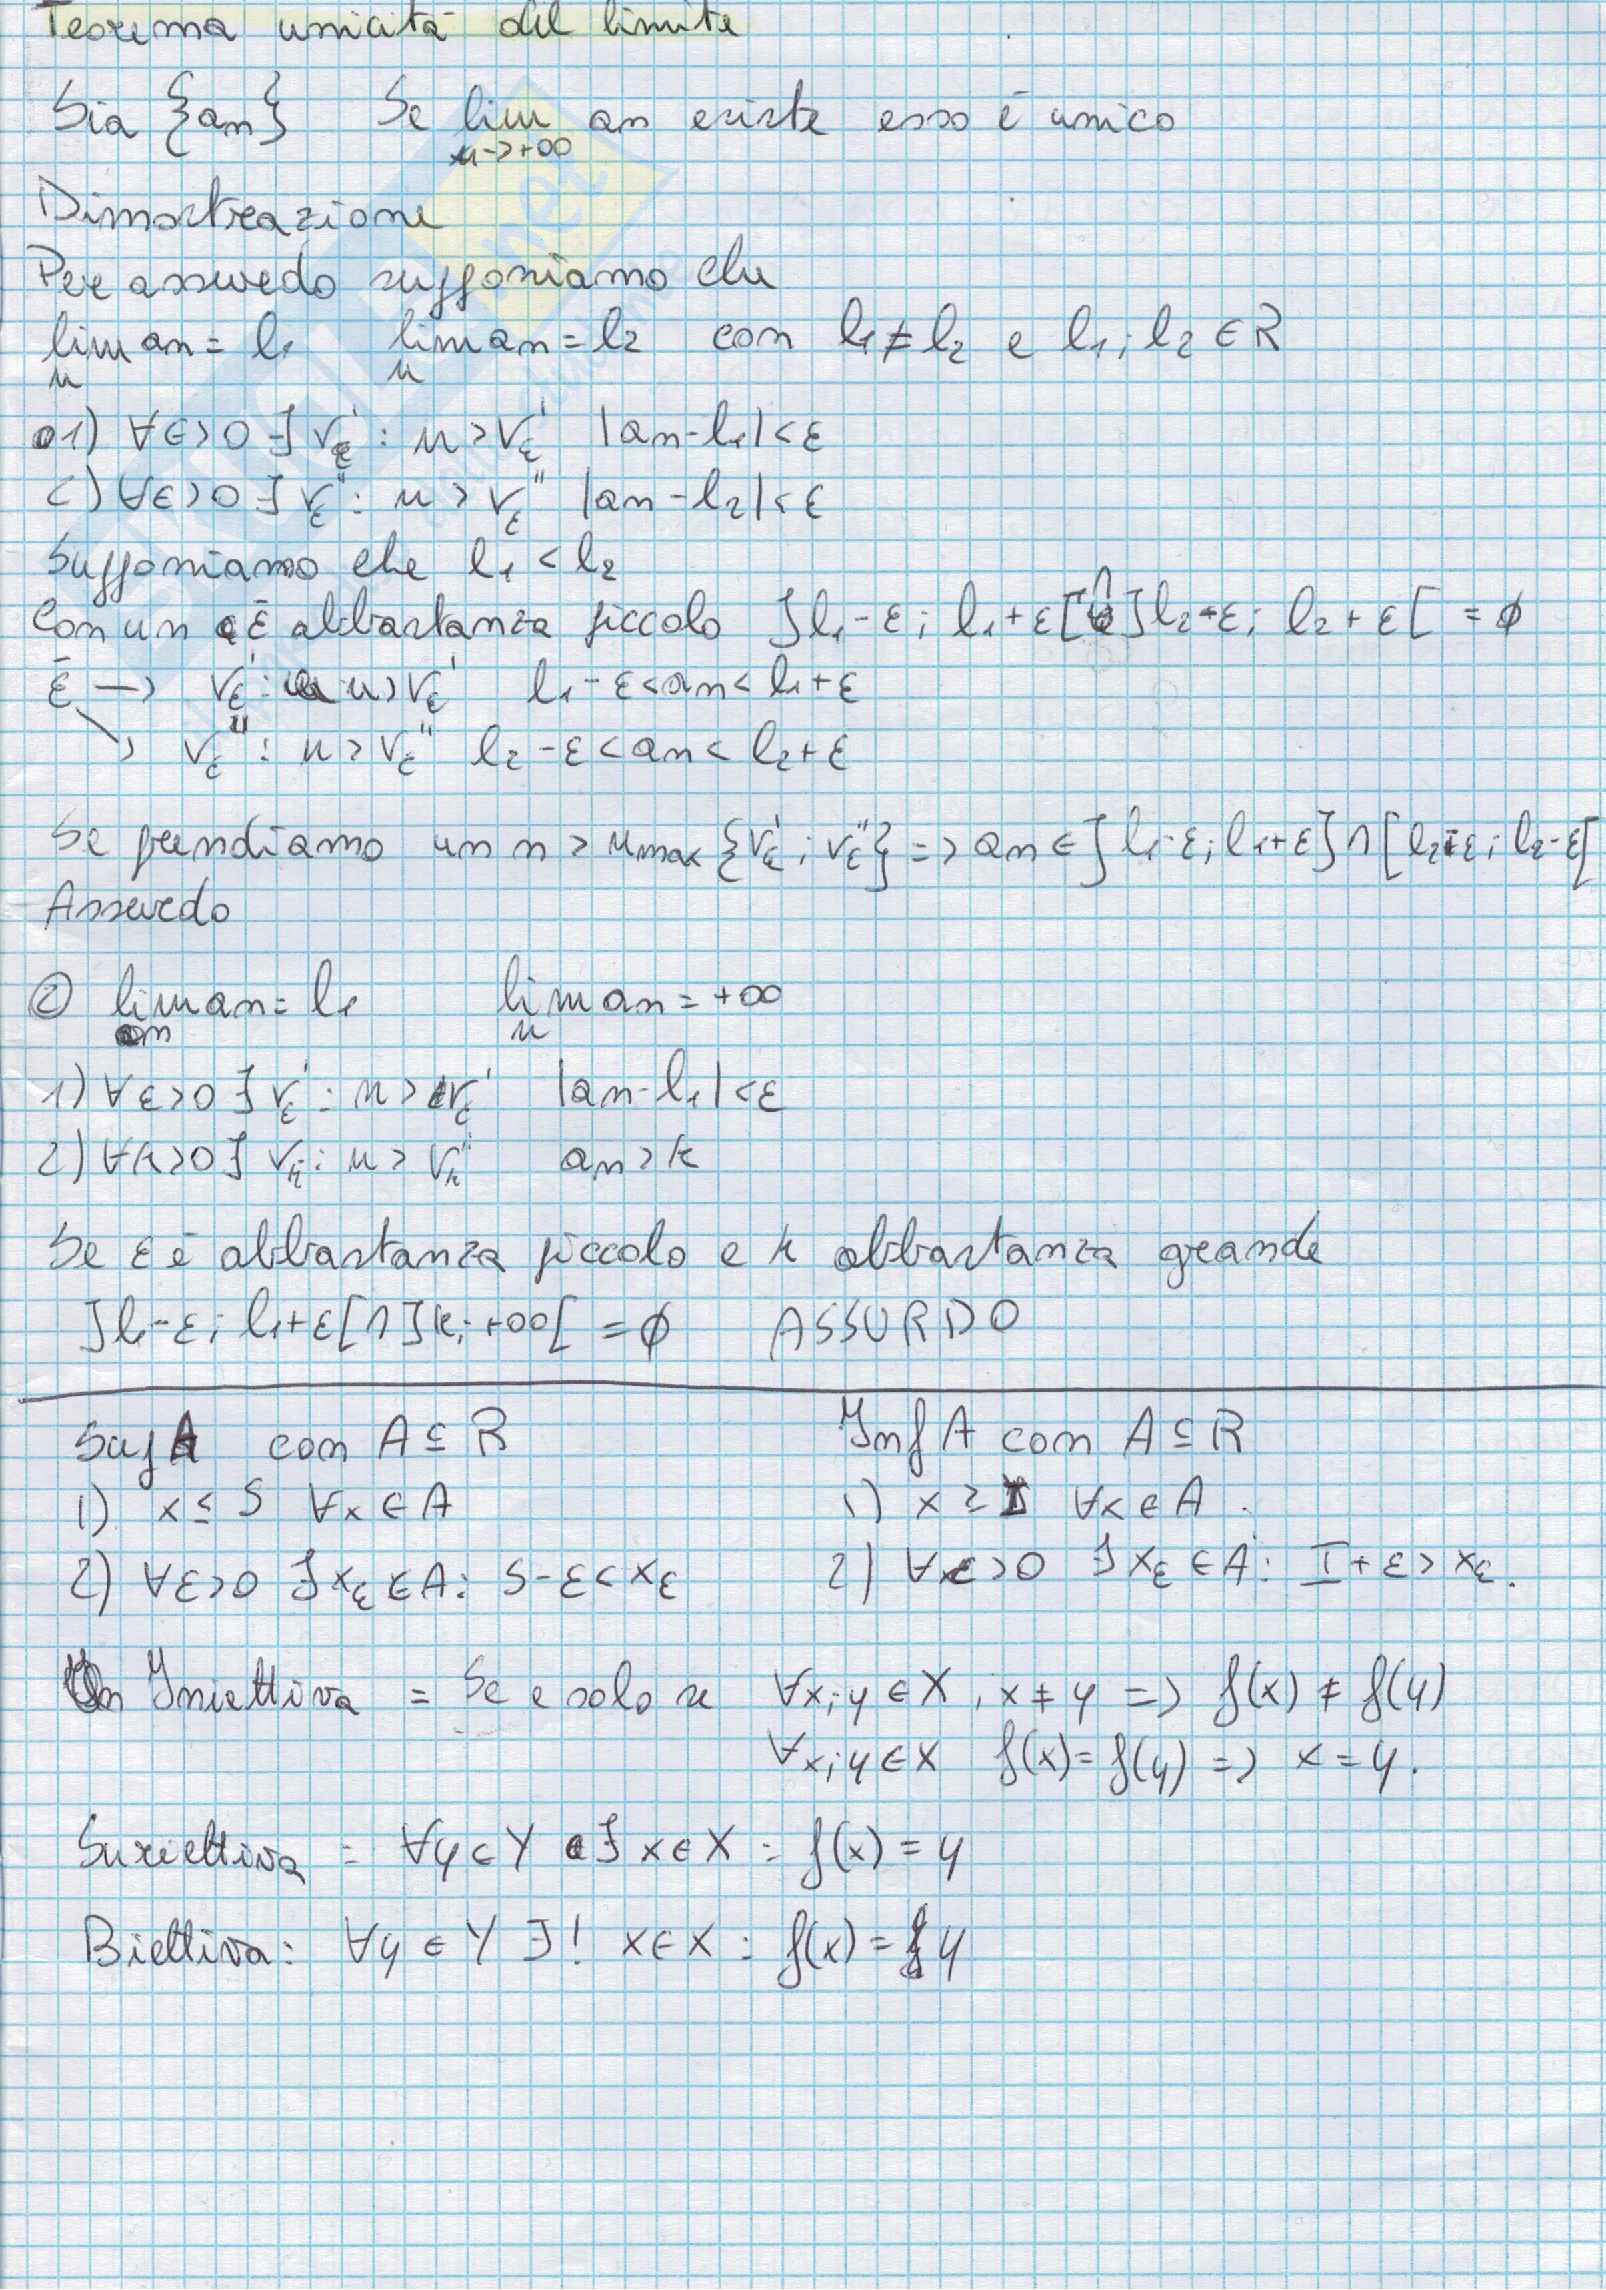 Teorema unicità del limite
Sia {an} Se lim an esiste esso è unico
n->+∞
Dimostrazione
Per assurdo supponiamo che
lim an = l1 lim an = l2 con l1 ≠ l2 e l1; l2 ∈ R
n n
1) ∀ε>0 ∃ νε' : n > νε' |an-l1|<ε
2) ∀ε>0 ∃ νε'' : n > νε'' |an-l2|<ε
Supponiamo che l1 < l2
Con un ε̄ abbastanza piccolo ]l1-ε; l1+ε[ ∩ ]l2-ε; l2+ε[ = ∅
ε̄ -> νε' : n > νε' l1-ε<an<l1+ε
-> νε'' : n > νε'' l2-ε<an<l2+ε
Se prendiamo un n > max {νε'; νε''} => an ∈ ]l1-ε; l1+ε] ∩ [l2+ε; l2-ε[
Assurdo
② lim an = l1 lim an = +∞
n n
1) ∀ε>0 ∃ νε' : n > νε' |an-l1|<ε
2) ∀k>0 ∃ νk'' : n > νk'' an > k
Se ε è abbastanza piccolo e k abbastanza grande
]l1-ε; l1+ε[ ∩ ]k; +∞[ = ∅ ASSURDO
Sup A con A ⊆ R Inf A con A ⊆ R
1) x ≤ S ∀x ∈ A 1) x ≥ I ∀x ∈ A.
2) ∀ε>0 ∃ xε ∈ A: S-ε < xε 2) ∀ε>0 ∃ xε ∈ A: I+ε > xε.
Iniettiva = Se e solo se ∀x;y ∈ X, x ≠ y => f(x) ≠ f(y)
∀x;y ∈ X f(x)=f(y) => x = y.
Suriettiva = ∀y ∈ Y ∃ x ∈ X : f(x) = y
Biettiva: ∀y ∈ Y ∃! x ∈ X : f(x) = y